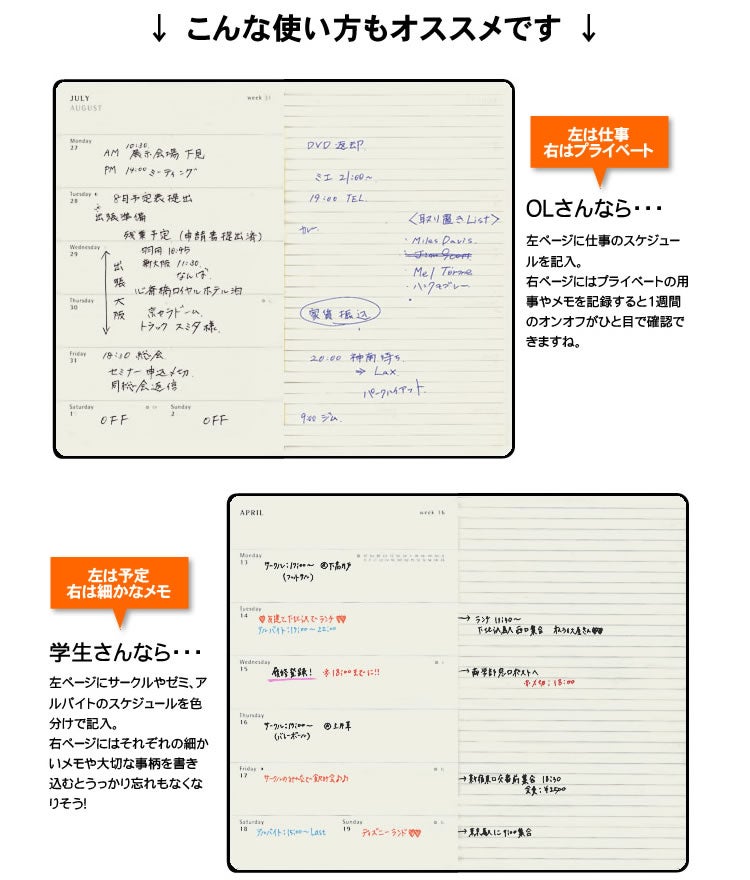 ↓ こんな使い方もオススメです ↓
JULY
AUGUST
week 31
Monday
27
10:30
AM 展示会場 下見
PM 14:00 ミーティング
Tuesday
28
8月予定表提出
出張準備
残業予定 (申請書提出済)
Wednesday
29
羽田 10:45
新大阪 11:30
なんば
心斎橋ロイヤルホテル泊
出張大阪
Thursday
30
京セラドーム
トラック スミダ様
Friday
31
18:30 総会
セミナー申込〆切
Saturday
1
OFF
Sunday
2
OFF
DVD 返却
ミエ 21:00~
19:00 TEL
<取り置きList>
・Miles Davis
・Mel Torme
家賃振込
20:00 神南待ち
⇒ Lax
パークハイアット
9:00 ジム
左は仕事
右はプライベート
OLさんなら・・・
左ページに仕事のスケジュー
ルを記入。
右ページにはプライベートの用
事やメモを記録すると1週間
のオンオフがひと目で確認で
きますね。
左は予定
右は細かなメモ
学生さんなら・・・
左ページにサークルやゼミ、ア
ルバイトのスケジュールを色
分けで記入。
右ページにはそれぞれの細か
いメモや大切な事柄を書き
込むとうっかり忘れもなくな
りそう!
APRIL
week 16
Monday
13
サークル:17:00~ @下高井戸
(フットサル)
Tuesday
14
友達と下北沢でランチ
アルバイト:17:00~22:00
Wednesday
15
履修登録! ※18:00までに!!
Thursday
16
サークル:17:00~
(バレーボール)
Friday
17
サークルのみんなで飲み会♪♪
Saturday
18
アルバイト:15:00~Last
Sunday
19
ディズニーランド
→ ランチ 11:30~
下北沢駅 西口集合
※〆切:18:00
→ 新宿東口交番前集合 18:30
会費:¥2500
→ 東京駅に9:00集合